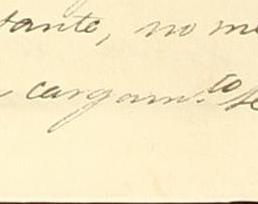 tante, no me
cargam.to se